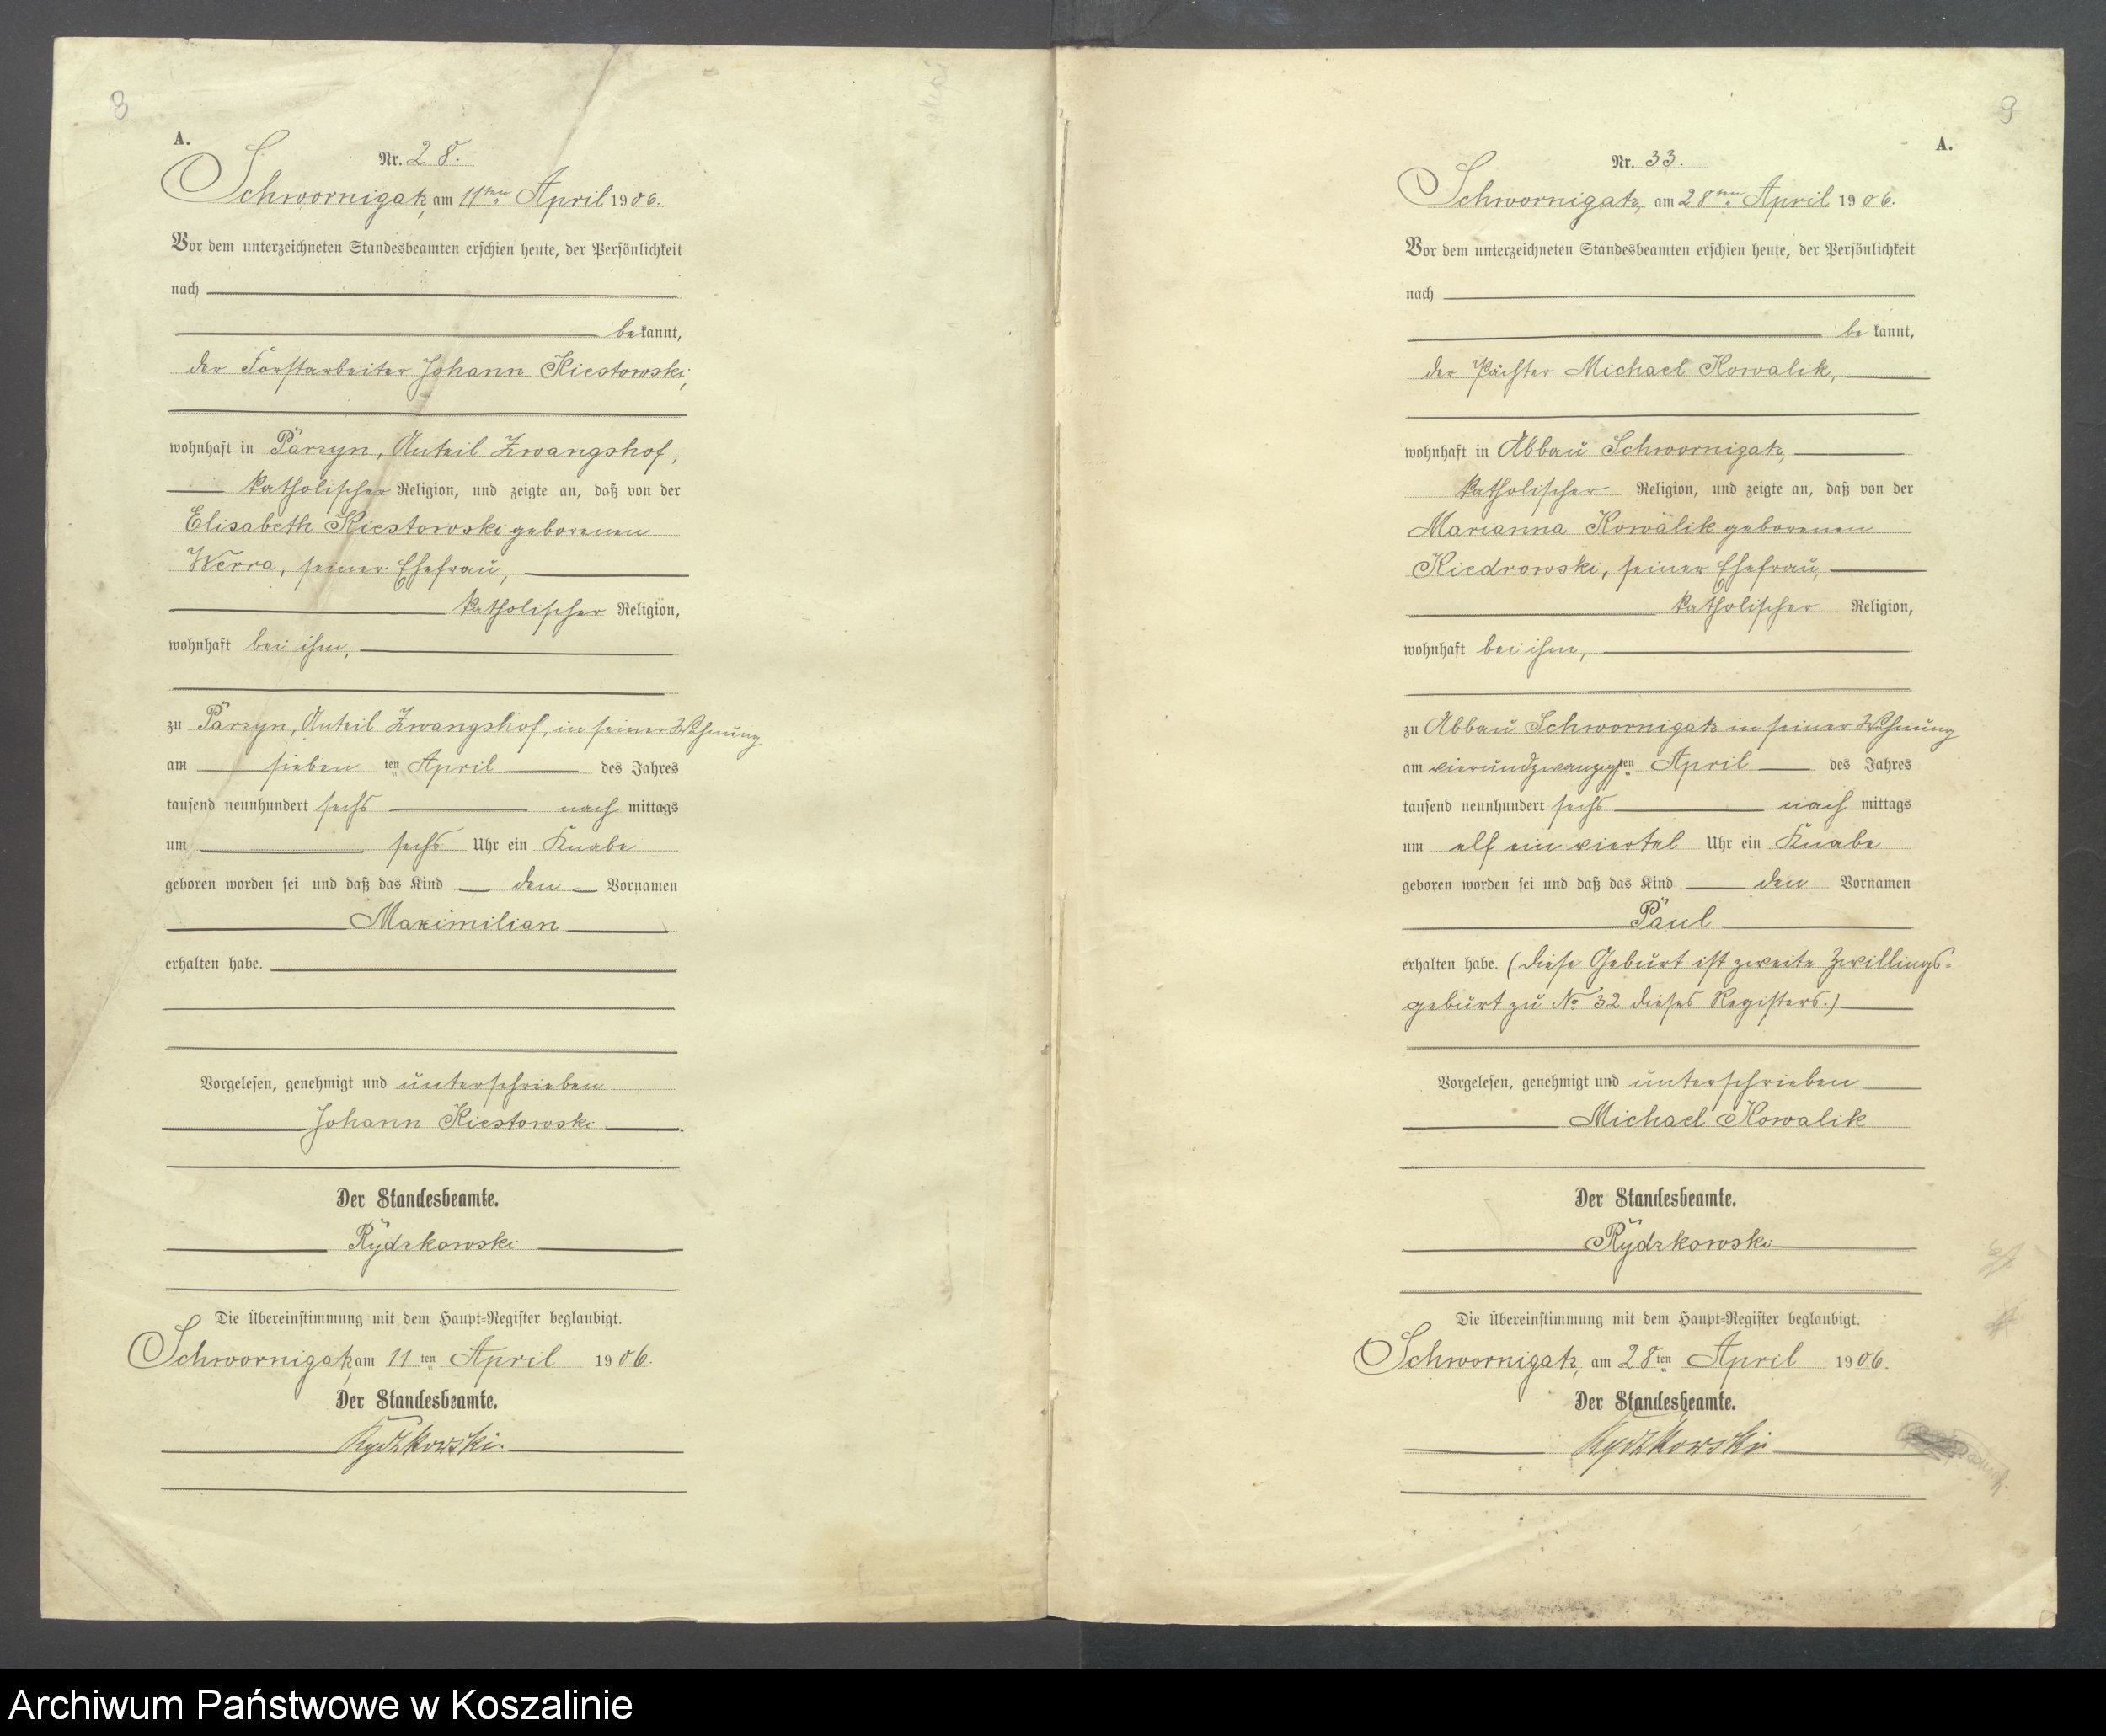 8
A.
Nr. 28.
Schwornigatz, am 11ten April 1906.
Vor dem unterzeichneten Standesbeamten erschien heute, der Persönlichkeit
nach
bekannt,
der Forstarbeiter Johann Kiestowski,
wohnhaft in Parzyn, Anteil Zwangshof,
katholischer Religion, und zeigte an, daß von der
Elisabeth Kiestowski geborenen
Werra, seiner Ehefrau,
katholischer Religion,
wohnhaft bei ihm,
zu Parzyn, Anteil Zwangshof, in seiner Wohnung
am sieben ten April des Jahres
tausend neunhundert sechs nach mittags
um sechs Uhr ein Knabe
geboren worden sei und daß das Kind den Vornamen
Maximilian
erhalten habe.
Vorgelesen, genehmigt und unterschrieben
Johann Kiestowski.
Der Standesbeamte.
Rydzkowski
Die Übereinstimmung mit dem Haupt-Register beglaubigt.
Schwornigatz, am 11 ten April 1906.
Der Standesbeamte.
Rydzkowski.
9
A.
Nr. 33.
Schwornigatz, am 28ten April 1906.
Vor dem unterzeichneten Standesbeamten erschien heute, der Persönlichkeit
nach
be kannt,
der Pächter Michael Kowalik,
wohnhaft in Abbau Schwornigatz,
katholischer Religion, und zeigte an, daß von der
Marianna Kowalik geborenen
Kiedrowski, seiner Ehefrau,
katholischer Religion,
wohnhaft bei ihm,
zu Abbau Schwornigatz in seiner Wohnung
am vierundzwanzigsten April des Jahres
tausend neunhundert sechs nach mittags
um elf ein viertel Uhr ein Knabe
geboren worden sei und daß das Kind den Vornamen
Paul
erhalten habe. (Diese Geburt ist zweite Zwillings-
geburt zu No 32 dieses Registers.)
Vorgelesen, genehmigt und unterschrieben
Michael Kowalik
Der Standesbeamte.
Rydzkowski
Die Übereinstimmung mit dem Haupt-Register beglaubigt.
Schwornigatz, am 28 ten April 1906.
Der Standesbeamte.
Rydzkowski
Archiwum Państwowe w Koszalinie